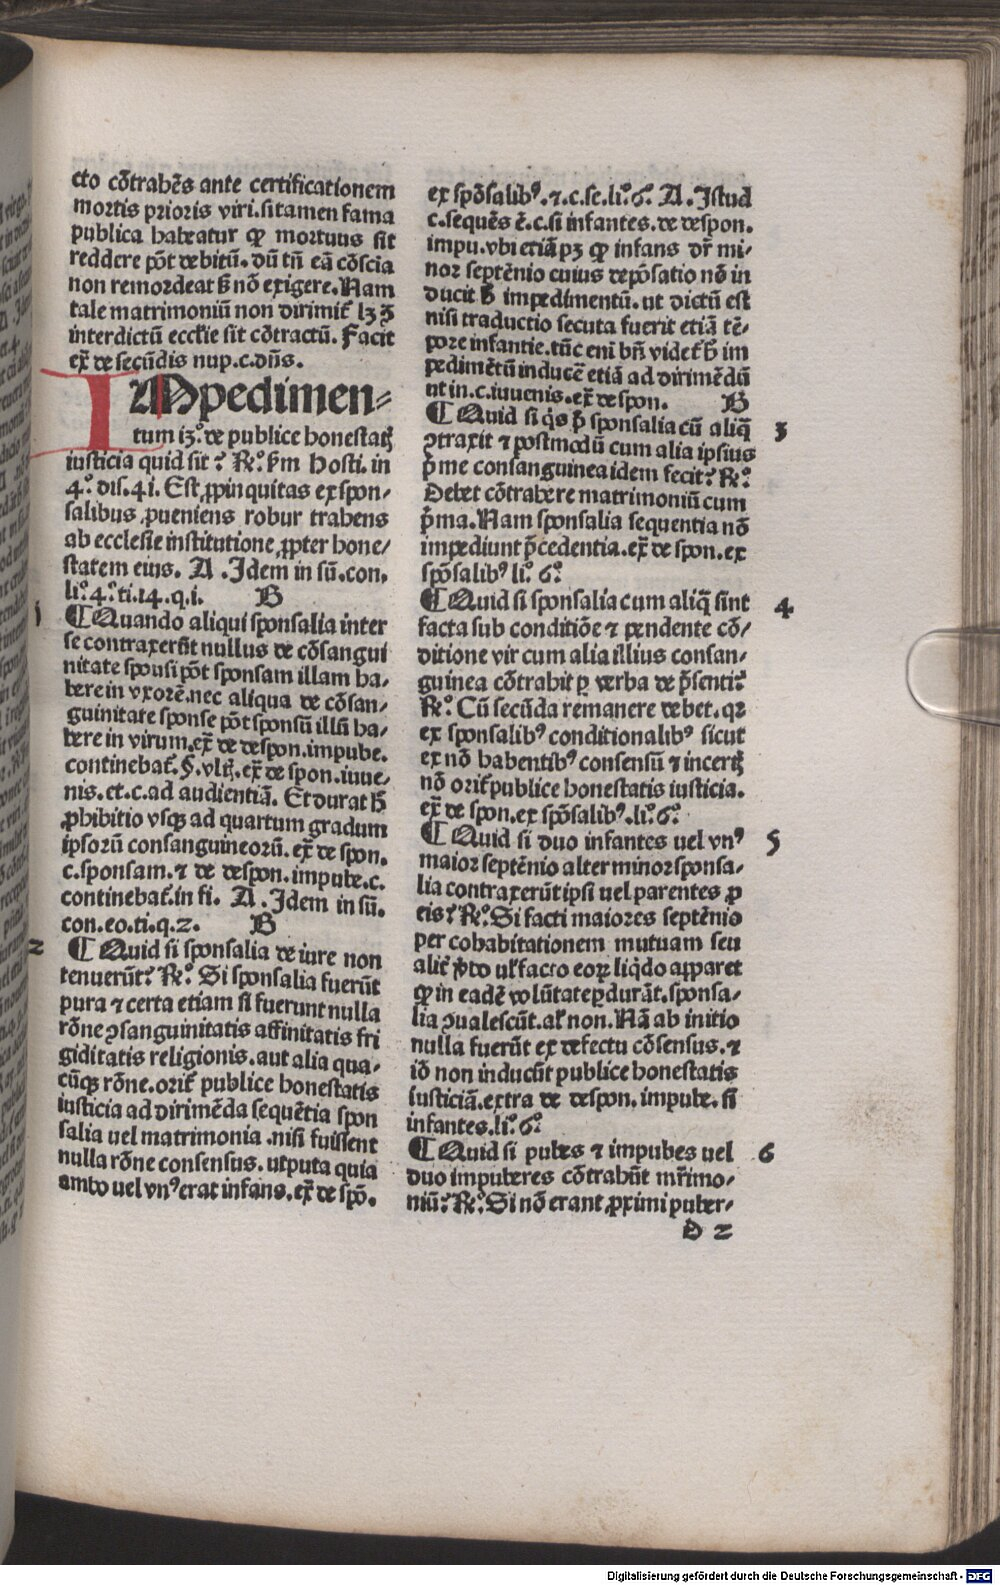 cto cōtrahēs ante certificationem
mortis prioris viri.si tamen fama
publica habeatur ꝙ mortuus sit
reddere pōt debitū. dū tn̄ eā cōscia
non remordeat ꝫ nō exigere. Nam
tale matrimoniū non dirimit᷑ lꝫ
interdictū ecclīe sit cōtractū. Facit
ex̄ de secūdis nup.c.dn̄s.
IMpedimen⸗
tum .de publice honestatꝭ
iusticia quid sit? R̄º. ẜm Hosti. in
4º. dis.41. Est ꝓpinquitas ex spon⸗
salibus ꝓueniens robur trahens
ab ecclesie institutione ꝓpter hone⸗
statem eius. A. Idem in sū.con.
li.º 4.º ti.14.q.1. B
1
¶Quando aliqui sponsalia inter
se contraxerūt nullus de cōsangui
nitate sponsi pōt sponsam illam ha⸗
bere in vxorē.nec aliqua de cōsan⸗
guinitate sponse pōt sponsū illū ha⸗
bere in virum.ex̄ de despon.impube.
continebat᷑. §. vltꝭ. ex̄ de spon.iuue⸗
nis.et.c.ad audientiā. Et durat hꝫ
ꝓhibitio vsqꝫ ad quartum gradum
ipsorū consanguineorū.ex̄ de spon.
c.sponsam.⁊ de despon.impube.c.
continebat᷑.in fi. A. Idem in sū.
con.eo.ti.q.2. B
2
¶Quid si sponsalia de iure non
tenuerūt? R̄º. Si sponsalia fuerūt
pura ⁊ certa etiam si fuerunt nulla
rōne ꝯsanguinitatis affinitatis fri
giditatis religionis.aut alia qua⸗
cūqꝫ rōne.orit᷑ publice honestatis
iusticia ad dirimēda sequētia spon
salia uel matrimonia .nisi fuissent
nulla rōne consensus. utputa quia
ambo uel vnꝰ erat infans.ex̄ de spō.
ex spōsalibꝰ.⁊.c.se.li.º 6.º A. Istud
c.sequēs ē.c.si infantes.de despon.
impu.vbi etiā pꝫ ꝙ infans dr̄ mi⸗
nor septēnio cuius depōsatio nō in
ducit hꝫ impedimentū. ut dictū est
nisi traductio secuta fuerit etiā tē⸗
pore infantie.tūc eni bn̄ videt᷑ hꝫ im
pedimētū inducē etiā ad dirimēdū
ut in.c.iuuenis.ex̄ de spon. B
3
¶Quid si qͥs pͥ sponsalia cū aliq̄
ꝯtraxit ⁊ postmodū cum alia ipsius
pͥme consanguinea idem fecit? R̄º.
Debet cōtrahere matrimoniū cum
pͥma. Nam sponsalia sequentia nō
impediunt p̄cedentia.ex̄ de spon.ex
spōsalibꝰ li.º 6.º
4
¶Quid si sponsalia cum aliq̄ sint
facta sub conditiōe ⁊ pendente cō⸗
ditione vir cum alia illius consan⸗
guinea cōtrahit ꝑ verba de p̄senti?
R̄º. Cū secūda remanere debet. qꝛ
ex sponsalibꝰ conditionalibꝰ sicut
ex nō habentibꝰ consensū ⁊ incertꝭ
nō orit᷑ publice honestatis iusticia.
ex̄ de spon.ex spōsalibꝰ.li.º 6.º
5
¶Quid si duo infantes uel vnꝰ
maior septēnio alter minor sponsa⸗
lia contraxerūt ipsi uel parentes ꝓ
eis? R̄º. Si facti maiores septēnio
per cohabitationem mutuam seu
alit᷑ ꝟbo ul᷑ facto eoꝝ liqͥdo apparet
ꝙ in eadē volūtate ꝑdurāt.sponsa⸗
lia ꝯualescūt. al᷑ non. Nā ab initio
nulla fuerūt ex defectu cōsensus. ⁊
iō non inducūt publice honestatis
iusticiā.extra de despon.impube. si
infantes.li.º 6.º
6
¶Quid si pubes ⁊ impubes uel
duo impuberes cōtrahūt mr̄imo⸗
niū? R̄º. Si nō erant ꝓximi puber⸗
D 2
Digitalisierung gefördert durch die Deutsche Forschungsgemeinschaft - DFG